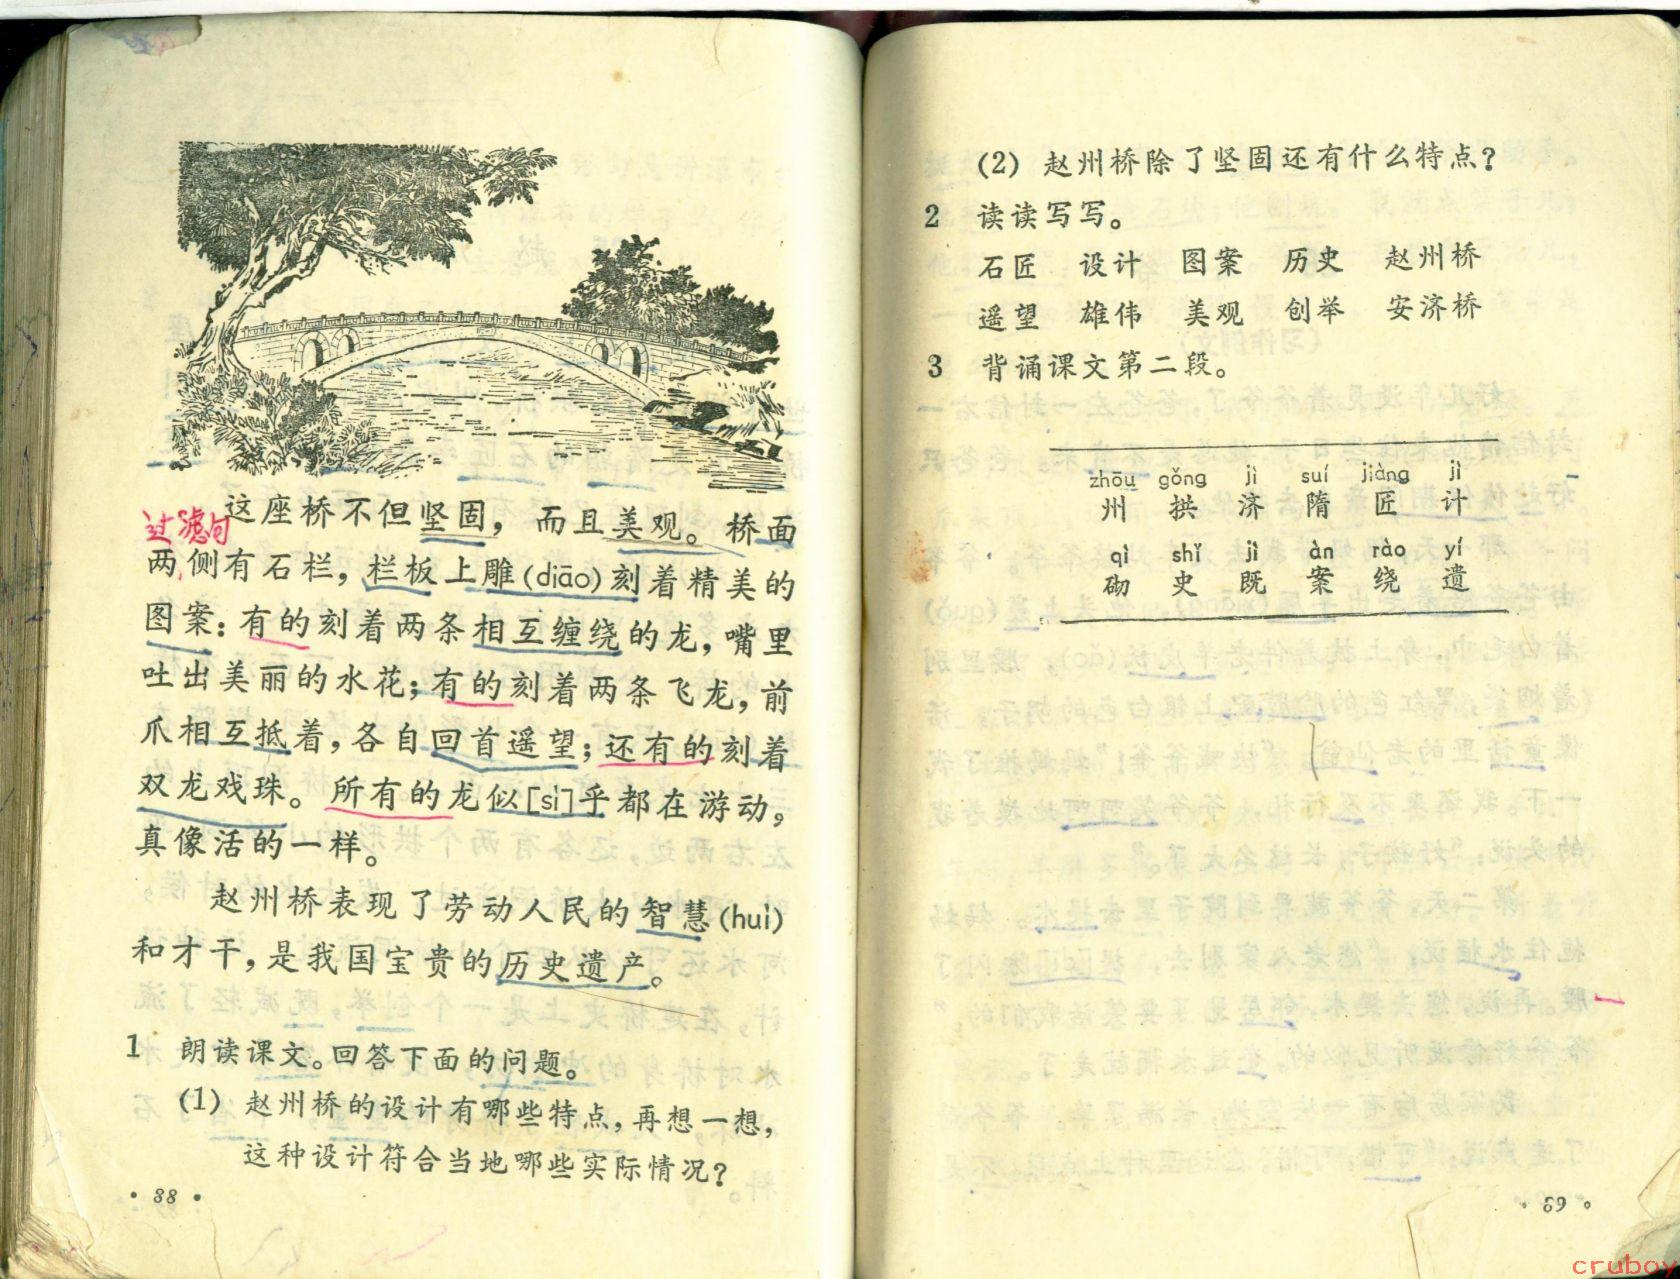 这座桥不但坚固，而且美观。桥面
过滤句
两侧有石栏，栏板上雕(diāo)刻着精美的
图案：有的刻着两条相互缠绕的龙，嘴里
吐出美丽的水花；有的刻着两条飞龙，前
爪相互抵着，各自回首遥望；还有的刻着
双龙戏珠。所有的龙似[sì]乎都在游动，
真像活的一样。
赵州桥表现了劳动人民的智慧(huì)
和才干，是我国宝贵的历史遗产。
1 朗读课文。回答下面的问题。
(1) 赵州桥的设计有哪些特点，再想一想，
这种设计符合当地哪些实际情况？
• 88 •
(2) 赵州桥除了坚固还有什么特点？
2 读读写写。
石匠 设计 图案 历史 赵州桥
遥望 雄伟 美观 创举 安济桥
3 背诵课文第二段。
zhōu gǒng jì suí jiàng jì
州 拱 济 隋 匠 计
qì shǐ jì àn rào yí
砌 史 既 案 绕 遗
• 89 •
cruboy